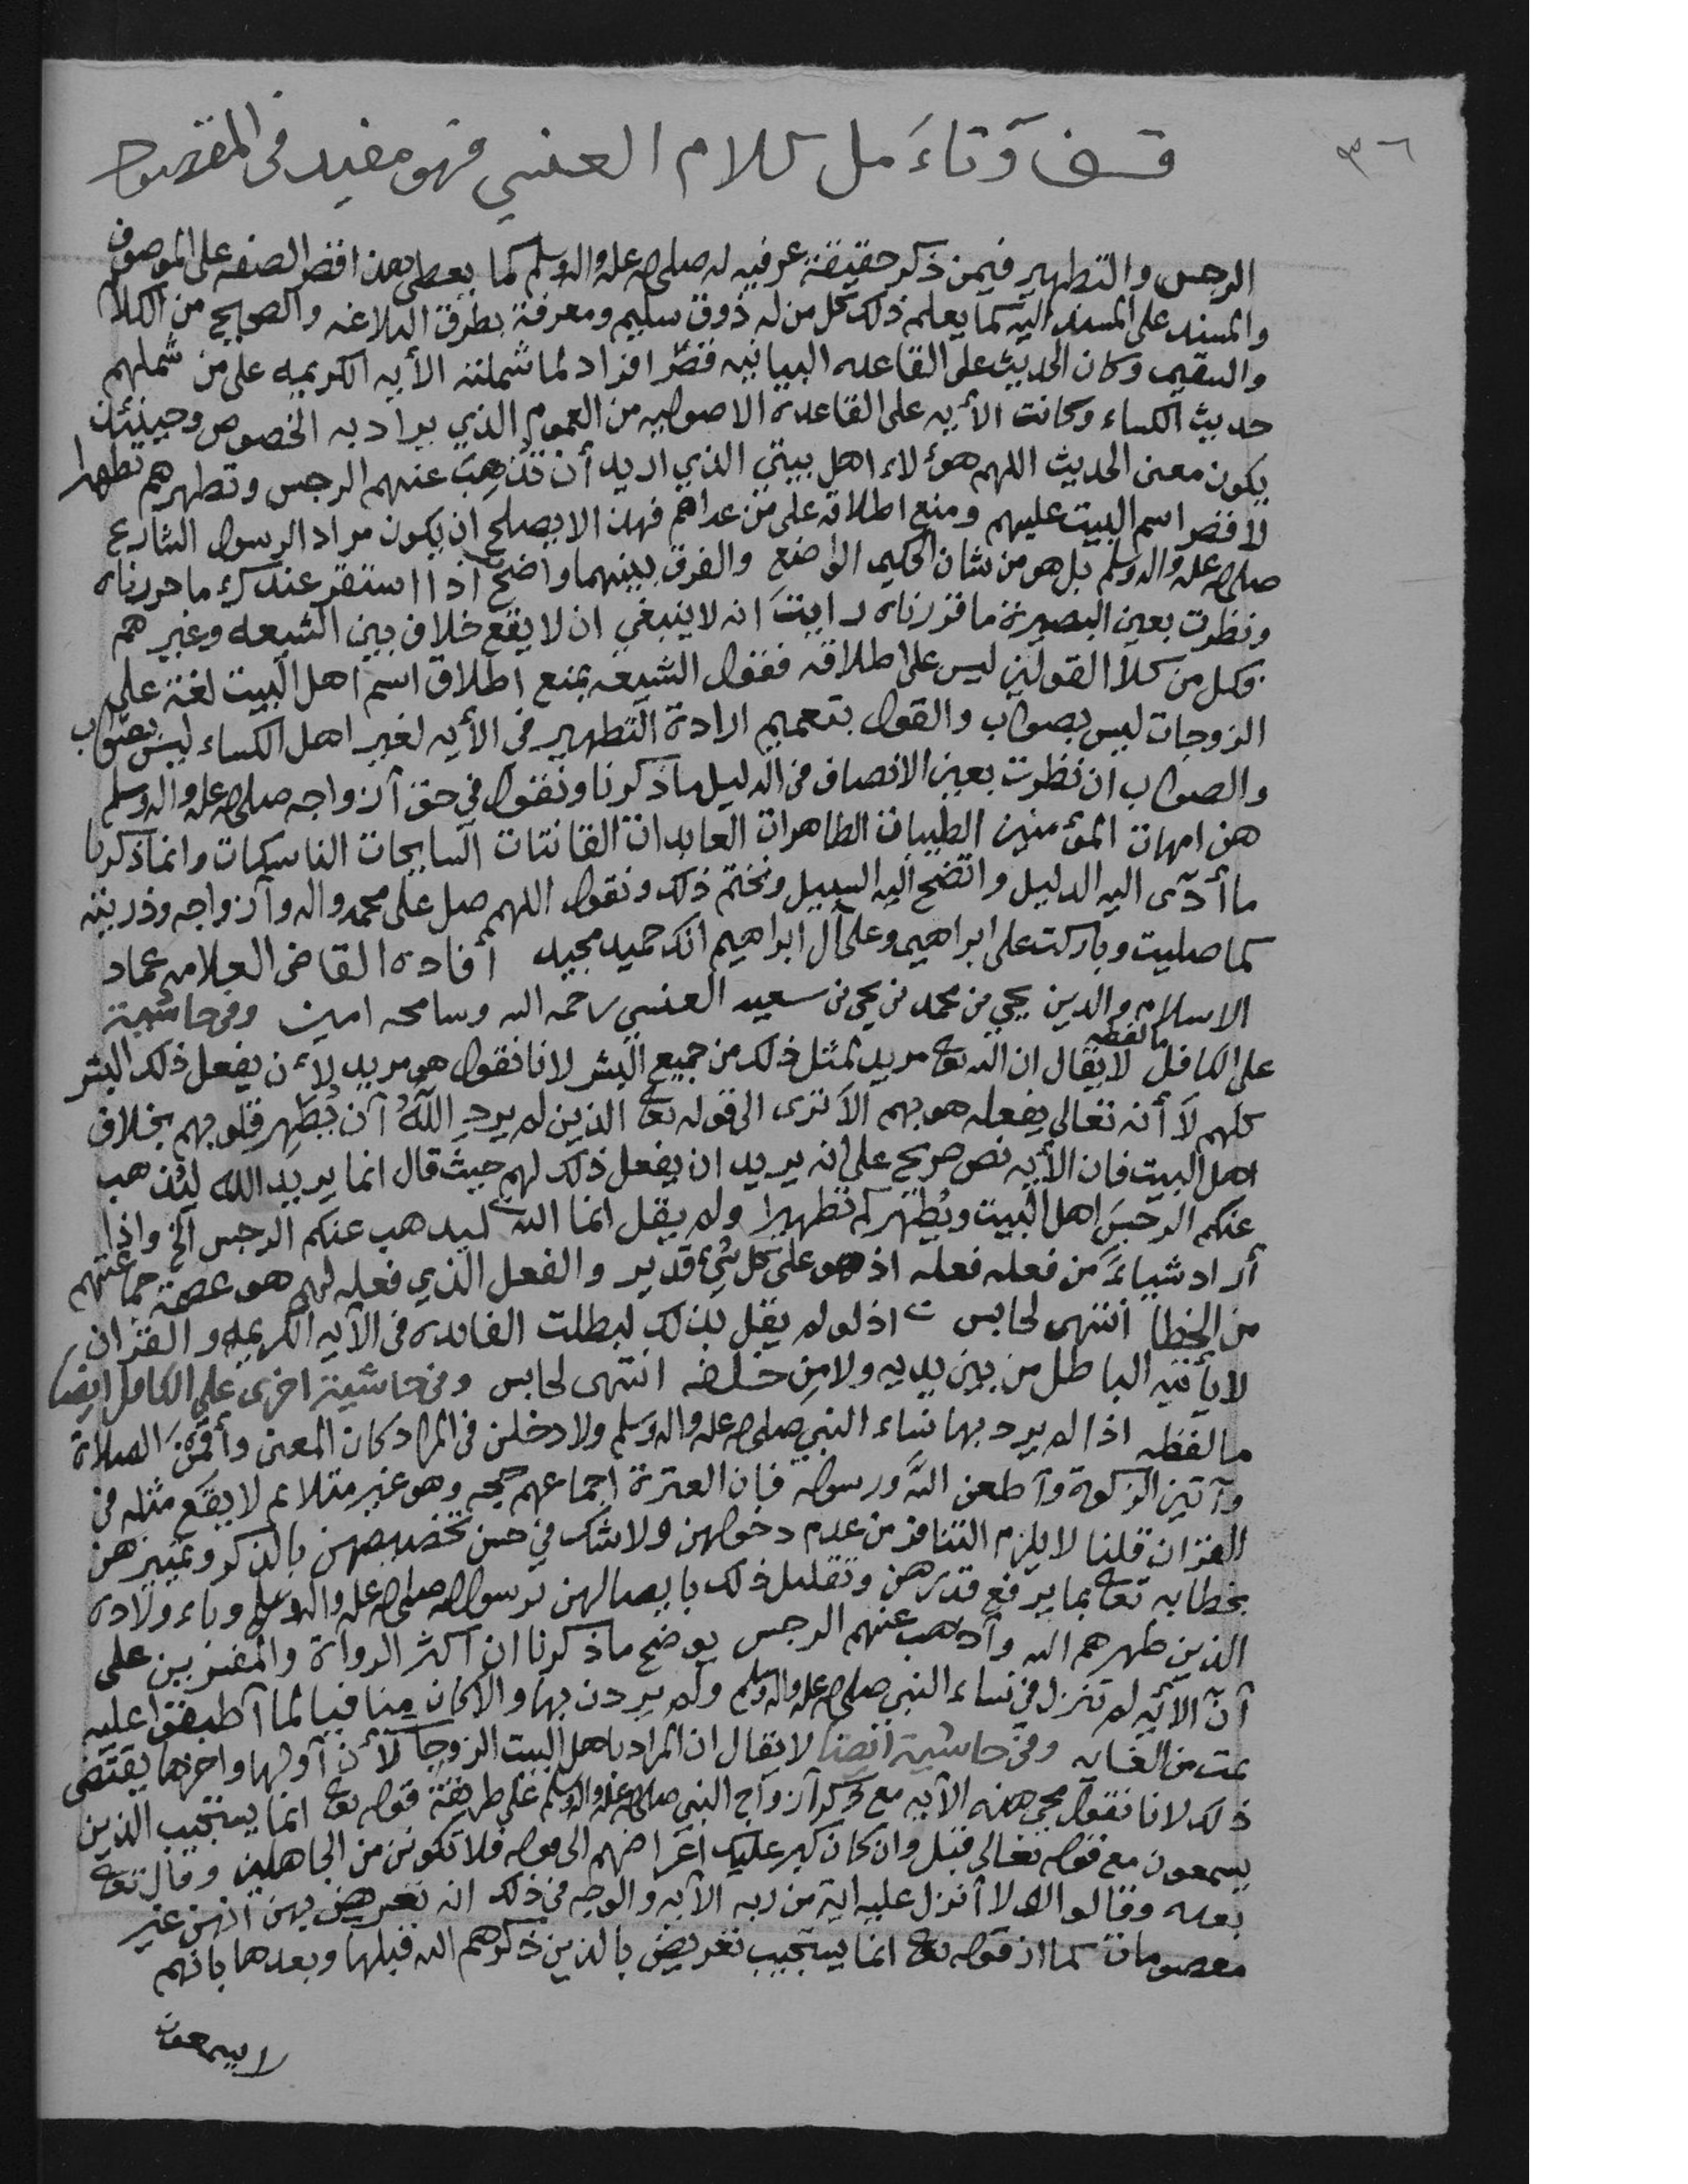 ٣٦
قف وتاءَمل كلام العنسي فهو مفيد في المقصود
الرجس والتطهير فيمن ذكر حقيقة عرفيه له صلى الله عليه واله وسلم كما يعطى هذا قصر الصفه على الموصوف
والمسند على المسند اليه كما يعلم ذلك كل من له ذوق سليم ومعرفة بطرق البلاغه والصحيح من الكلام
والسقيم وكان الحديث على القاعده البيانيه قصر افراد لما شملته الأيه الكريمه على من شملهم
حديث الكساء وكانت الأيه على القاعدة الاصوليه من العموم الذي يراد به الخصوص وحينئذ
يكون معنى الحديث اللهم هؤلاء اهل بيتي الذي اريد أن تذهب عنهم الرجس وتطهرهم تطهيرا
لا قصر اسم البيت عليهم ومنع اطلاقه على من عداهم فهذا لا يصلح ان يكون مراد الرسول الشارع
صلى الله عليه واله وسلم بل هو من شان الحكيم الواضع والفرق بينهما واضح اذا استقر عندك ما حررناه
ونظرت بعين البصيرة ما قررناه رايتَ انه لا ينبغي ان لا يقع خلاف بين الشيعه وغيرهم
وكل من كلا القولين ليس على اطلاقه فقول الشيعه بمنع اطلاق اسم اهل البيت لغة على
الزوجات ليس بصواب والقول بتعميم ارادة التطهير في الأيه لغير اهل الكساء ليس بصواب
والصواب ان نظرت بعين الانصاف في الدليل ما ذكرنا ونقول في حق أزواجه صلى الله عليه واله وسلم
هن امهات المؤمنين الطيبات الطاهرات العابدات القانتات السايحات الناسكات وانما ذكرنا
ما أدّى اليه الدليل واتضح اليه السبيل ونختم ذلك ونقول اللهم صل على محمد واله وأزواجه وذريته
كما صليت وباركت على ابراهيم وعلى آل ابراهيم انك حميد مجيد أفاده القاضي العلامه عماد
الاسلام والدين يحيى بن محمد بن يحيى بن سعيد العنسي رحمه الله وسامحه امين وفي حاشية
على الكافل ما لفظه لا يقال ان الله تعا مريد لمثل ذلك من جميع البشر لانا نقول هو مريد لأن يفعل ذلك البشر
كلهم لا أنه تعالى يفعله هو بهم الا ترى الى قوله تعا الذين لم يرد اللهُ أن يُطَهِر قلوبهم بخلاف
اهل البيت فان الأيه نص صريح على انه يريد ان يفعل ذلك لهم حيث قال انما يريد الله ليذهب
عنكم الرجسَ اهل البيت ويُطهركم تطهيرا ولم يقل انما الله ليذهب عنكم الرجس الخ واذا
أراد شياءً من فعله فعله اذ هو على كل شيء قدير والفعل الذي فعله لهم هو عصمة جماعتهم
من الخطا انتهى لحابس اذ لو لم يقل بذلك لبطلت الفايده في الآيه الكريمه والقران
لا يأتيه الباطل من بين يديه ولا من خلفه انتهى لحابس وفي حاشية اخرى على الكافل ايضا
ما لفظه اذا لم يرد بها نساء النبي صلى الله عليه واله وسلم ولا دخلن في المراد كان المعنى وأقمنَ الصلاة
وآتين الزكوة وأطعن اللهَ ورسوله فان العترة اجماعهم حجه وهو غير متلائم لا يقع مثله في
القران قلنا لا يلزم التنافر من عدم دخولهن ولا شك في حسن تخصيصهن بالذكر وتمييزهن
بخطابه تعا بما يرفع قدرهن وتعليل ذلك بايصالهن برسول الله صلى الله عليه واله وسلم وباءولاده
الذين طهرهم الله وأذهب عنهم الرجس يوضح ما ذكرنا ان اكثر الرواة والمفسرين على
أن الأيه لم تنزل في نساء النبي صلى الله عليه واله وسلم ولم يردن بها والا كان منافيا لما أطبقوا عليه
تمت من الغايه وفي حاشية ايضا لا يقال ان المراد باهل البيت الزوجات لأن أولها واخرها يقتضي
ذلك لانا نقول مجي هذه الآيه مع ذكر أزواج النبي صلى الله عليه واله وسلم على طريقة قوله تعا انما يستجيب الذين
يسمعون مع قوله تعالى قبل وان كان كبر عليك اعراضهم الى قوله فلا تكونن من الجاهلين وقال تعا
بعده وقالوا لولا أنزل عليه اية من ربه الآيه والوجه في ذلك انه تعريض بهن انهن غير
معصومات كما ان قوله تعا انما يستجيب تعريض بالذين ذكرهم الله قبلها وبعدها بانهم
لا يسمعون